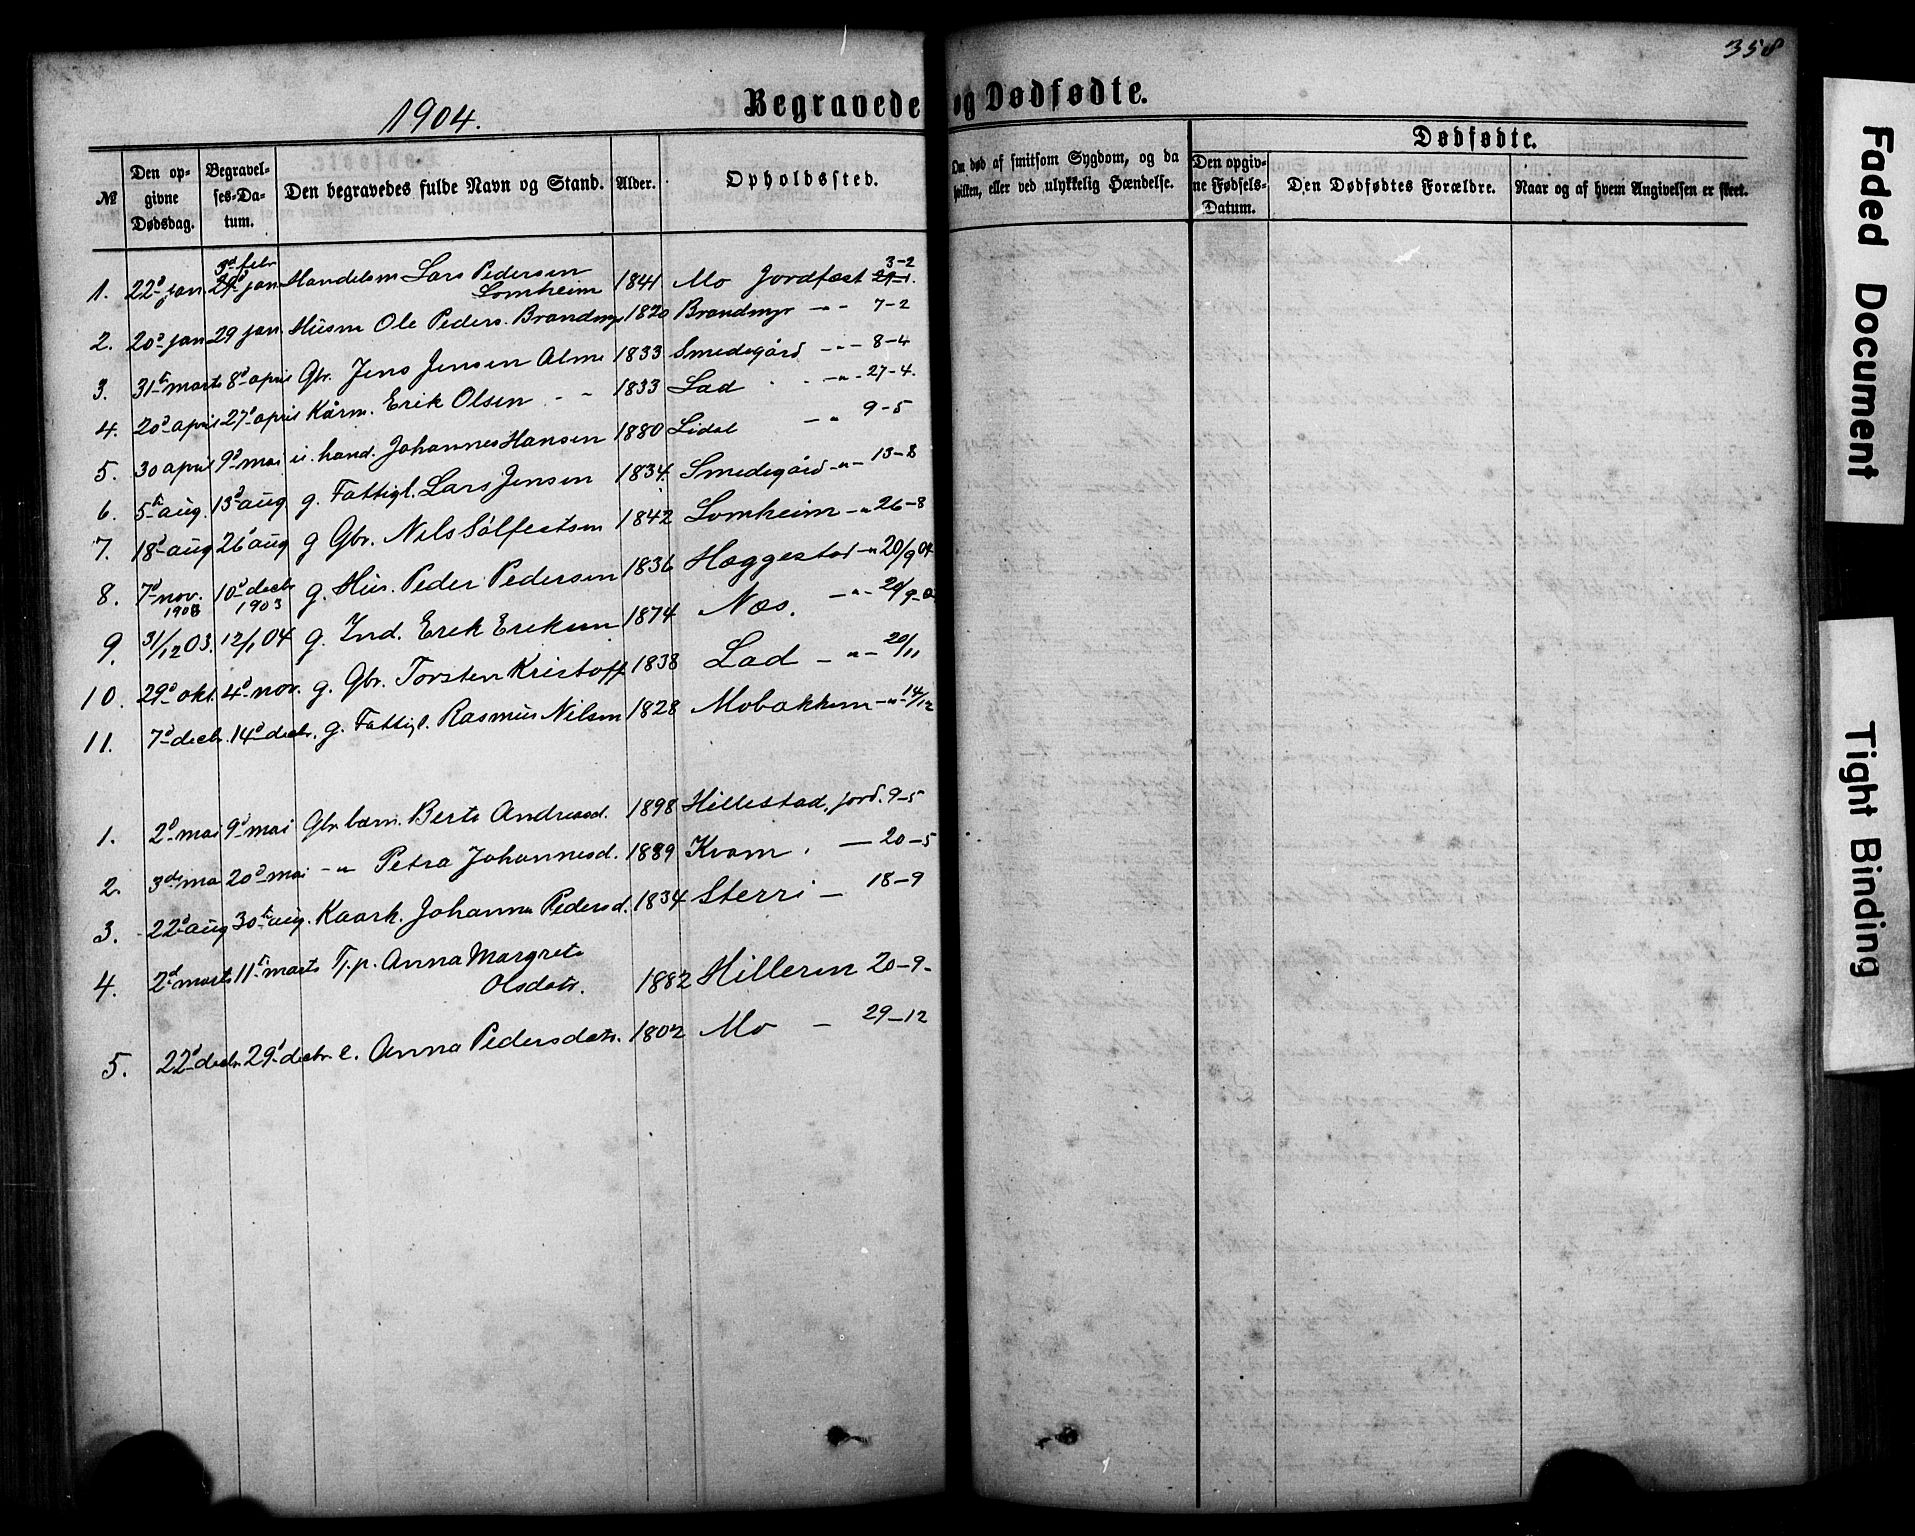 358
1904.
Begravede og Dødfødte.
№ | Den opgivne Dødsdag. | Begravelses-Datum. | Den begravedes fulde Navn og Stand. | Alder. | Opholdssted. | Om død af smitsom Sygdom, og da hvilken, eller ved ulykkelig Hændelse. | Dødfødte.
Den opgivne Fødsels-Datum. | Den Dødfødtes Forældre. | Naar og af hvem Angivelsen er skeet.
3d febr 3-2
1. 22d jan. 29d jan Handelsm Lars Pedersen Lomheim 1841 Mo Jordfæst 29-1.
2. 20d jan 29 jan. Husm Ole Peders. Brandmyr 1820 Brandmyr -"- 7-2
3. 31te marts 8d april Gbr. Jens Jensen Alme 1833 Smedegård -"- 8-4
4. 20d april 27d april Kårm. Erik Olsen - - 1833 Lad -"- 27-4.
5. 30 april 9d mai u. hand. Johannes Hansen 1880 Lidal -"- 9-5
6. 5te aug. 13d aug g. Fattigl. Lars Jensen 1834. Smedegård -"- 13-8
7. 18d aug 26d aug g Gbr. Nils Sølfestsen 1842 Lomheim -" 26-8
8. 7d nov. 1903 10d decbr 1903 g. Hus. Peder Pedersen 1836 Hæggestad -" 20/9 04
9. 31/12 03. 12/1 04 g. Ind. Erik Eriksen 1874 Næs. -"- 20/9-0
10. 29d okt. 4d nov. g. Gbr. Torsten Kristoff 1838 Lad -"- 20/11
11. 7d decbr. 14d decbr. g. Fattigl. Rasmus Nilsen 1828 Mobakken -"- 14/12
1. 2d mai 9d mai Gbr barn. Berte Andreasd. 1898 Hillestad, jord. 9-5
2. 3die mai 20d mai -" Petra Johannesd. 1889 Kvam. — 20-5
3. 22d aug 30te aug. Kaark. Johanna Pedersd. 1834 Sterri — 18-9
4. 2d marts 11te marts Tj.p. Anna Margrete Olsdatr. 1882 Hilleren 20-9-
5. 22d decbr. 29d decbr. e. Anna Pedersdatr. 1802 Mo — 29-12
Faded Document
Tight Binding